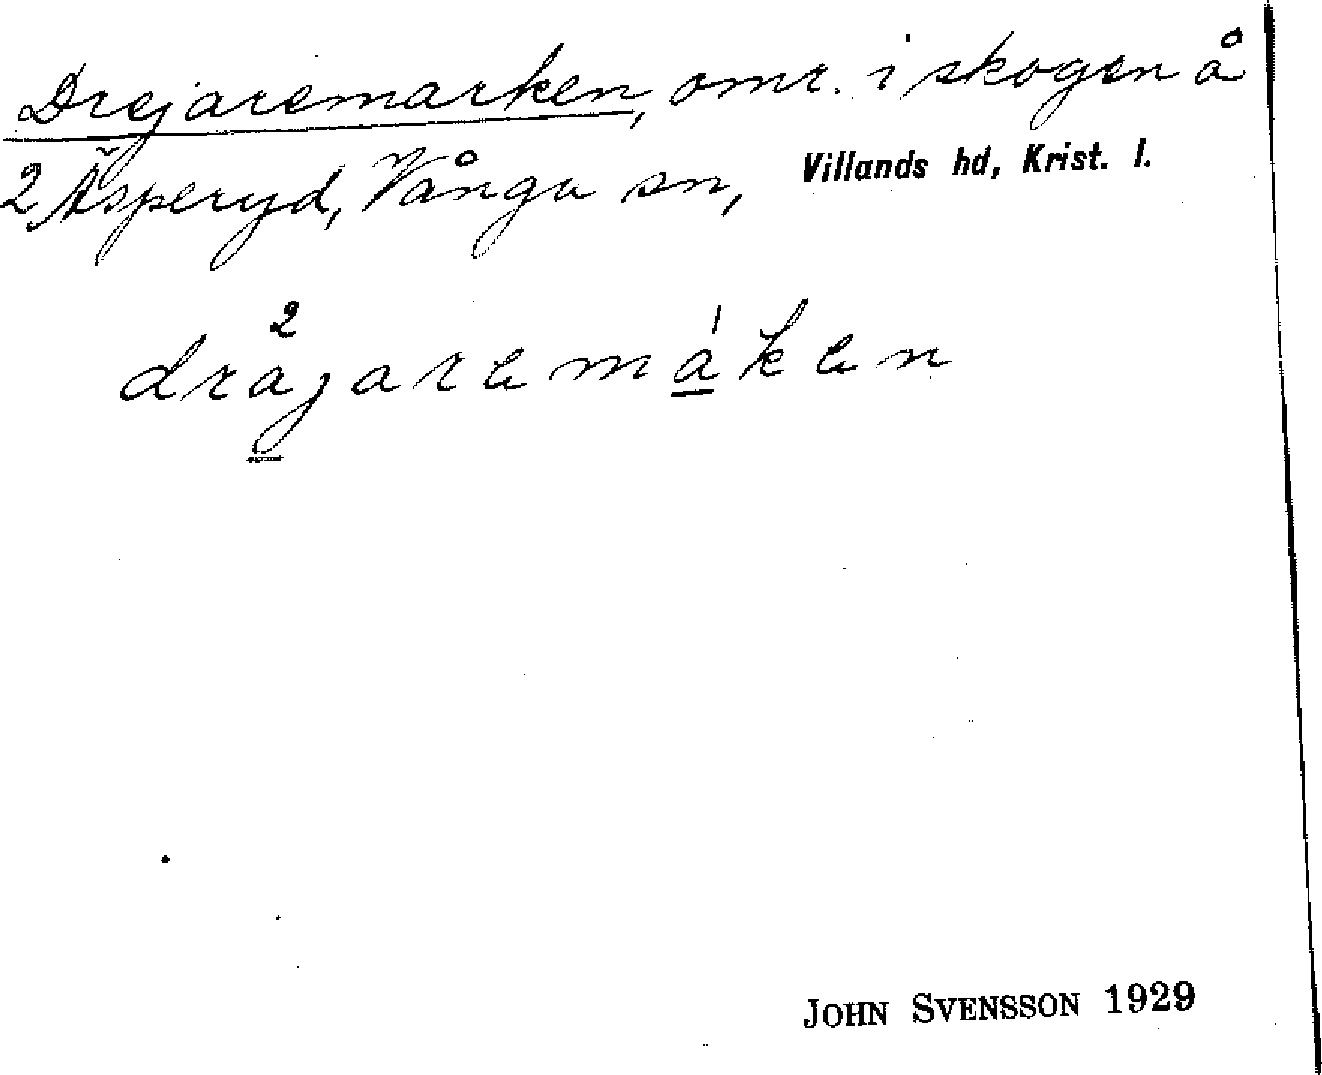 Drejaremarken, omr. i skogen å
2 Äsperyd, Vånga sn, Villands hd, Krist. l.
dra²jaremáken
JOHN SVENSSON 1929